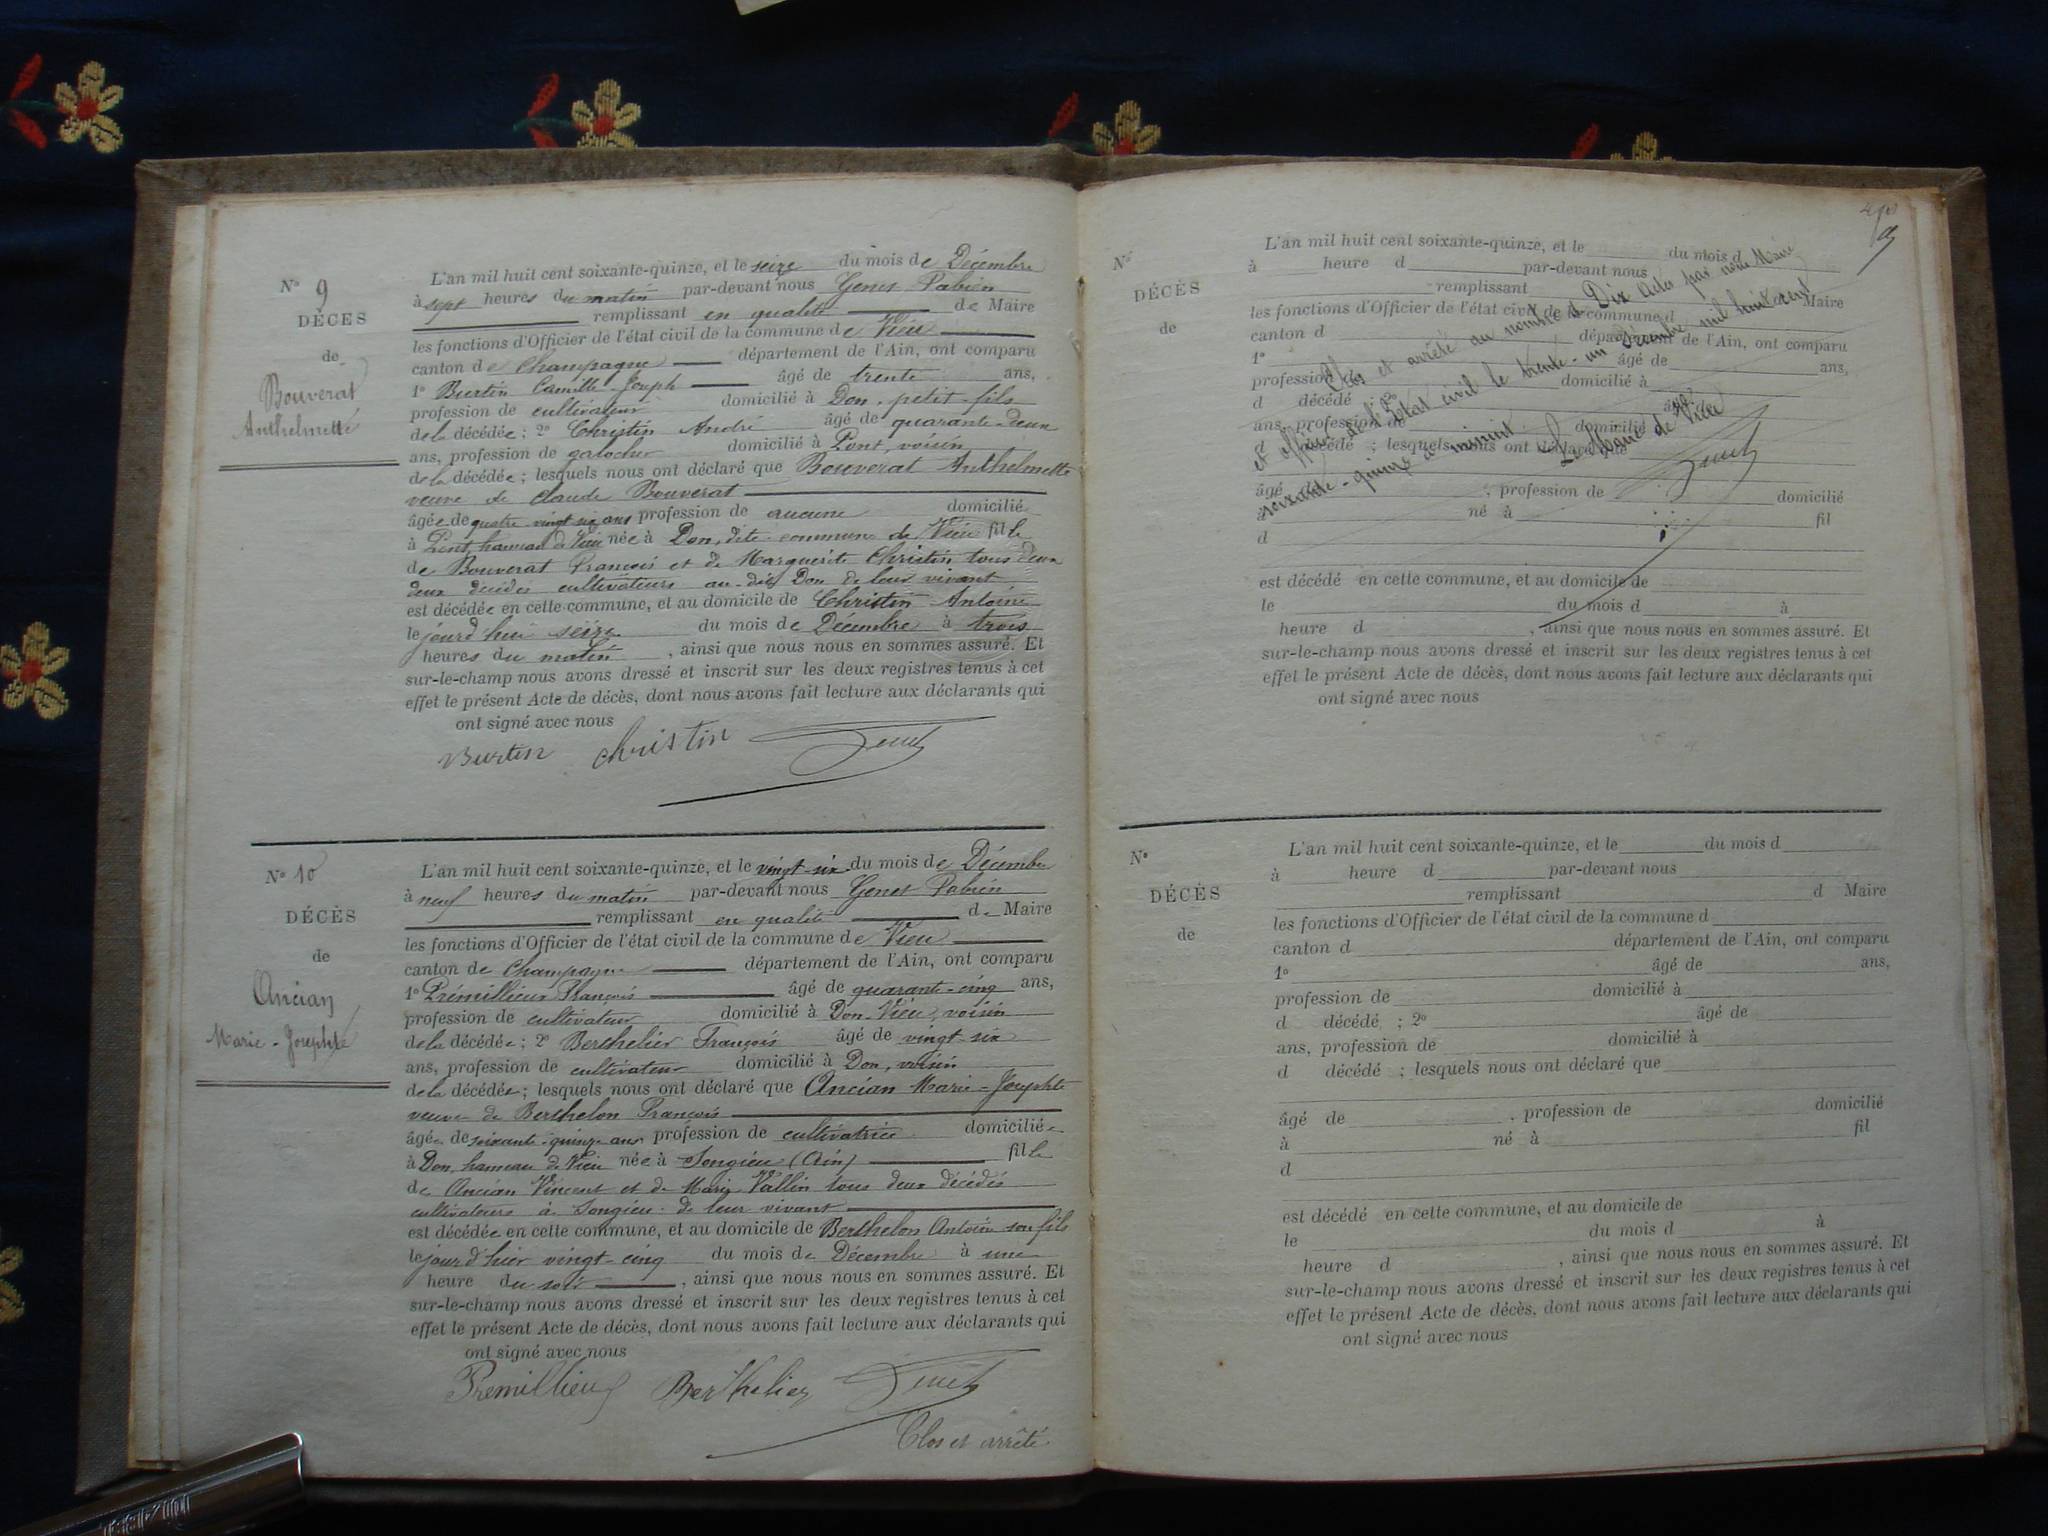 N° 9
DÉCÈS
de
Bouverat
Anthelmette
L'an mil huit cent soixante-quinze, et le seize du mois de Décembre
à sept heures du matin par-devant nous Genet Fabien
remplissant en qualité de Maire
les fonctions d'Officier de l'état civil de la commune de Vieu
canton de Champagne département de l'Ain, ont comparu
1° Burtin Camille-Joseph âgé de trente ans,
profession de cultivateur domicilié à Don, petit-fils
de la décédée; 2° Christin André âgé de quarante-deux
ans, profession de galocher domicilié à Pont, voisin
de la décédée; lesquels nous ont déclaré que Bouverat Anthelmette
veuve de Claude Bouverat
âgée de quatre-vingt six ans profession de aucune domicilié
à Pont, hameau de Vieu née à Don, dite commune de Vieu fille
de Bouverat François et de Marguerite Christin tous deux
deux décédés cultivateurs au-dit Don de leur vivant
est décédée en cette commune, et au domicile de Christin Antoine
le jourd'hui seize du mois de Décembre à trois
heures du matin, ainsi que nous nous en sommes assuré. Et
sur-le-champ nous avons dressé et inscrit sur les deux registres tenus à cet
effet le présent Acte de décès, dont nous avons fait lecture aux déclarants qui
ont signé avec nous
Burtin Christin Genet
N° 10
DÉCÈS
de
Ancian
Marie-Josephte
L'an mil huit cent soixante-quinze, et le vingt-six du mois de Décembre
à neuf heures du matin par-devant nous Genet Fabien
remplissant en qualité de Maire
les fonctions d'Officier de l'état civil de la commune de Vieu
canton de Champagne département de l'Ain, ont comparu
1° Prémillieux François âgé de quarante-cinq ans,
profession de cultivateur domicilié à Don-Vieu, voisin
de la décédée; 2° Berthelier François âgé de vingt six
ans, profession de cultivateur domicilié à Don, voisin
de la décédée; lesquels nous ont déclaré que Ancian Marie-Josephte
veuve de Berthelon François
âgée de soixante-quinze ans profession de cultivatrice domiciliée
à Don, hameau de Vieu née à Songieu (Ain) fille
de Ancian Vincent et de Marie Vallin tous deux décédés
cultivateurs à Songieu de leur vivant
est décédée en cette commune, et au domicile de Berthelon Antoine son fils
le jour d'hier vingt-cinq du mois de Décembre à une
heure du soir, ainsi que nous nous en sommes assuré. Et
sur-le-champ nous avons dressé et inscrit sur les deux registres tenus à cet
effet le présent Acte de décès, dont nous avons fait lecture aux déclarants qui
ont signé avec nous
Premillieux Berthelier Genet
Clos et arrêté
N°
DÉCÈS
de
L'an mil huit cent soixante-quinze, et le du mois d
à heure d par-devant nous
remplissant
les fonctions d'Officier de l'état civil de la commune d Maire
canton d département de l'Ain, ont comparu
1° âgé de ans,
profession de domicilié à
d décédé ; 2° âgé de
ans, profession de domicilié à
d décédé ; lesquels nous ont déclaré que
âgé de , profession de domicilié
à né à fil
d
est décédé en cette commune, et au domicile de
le du mois d à
heure d , ainsi que nous nous en sommes assuré. Et
sur-le-champ nous avons dressé et inscrit sur les deux registres tenus à cet
effet le présent Acte de décès, dont nous avons fait lecture aux déclarants qui
ont signé avec nous
Clos et arrêté au nombre d Dix actes par nous Maire
et officier de l'Etat civil le trente-un Décembre mil huit cent
soixante-quinze à minuit
Le Maire de Vieu
Genet
N°
DÉCÈS
de
L'an mil huit cent soixante-quinze, et le du mois d
à heure d par-devant nous
remplissant d Maire
les fonctions d'Officier de l'état civil de la commune d
canton d département de l'Ain, ont comparu
1° âgé de ans,
profession de domicilié à
d décédé ; 2° âgé de
ans, profession de domicilié à
d décédé ; lesquels nous ont déclaré que
âgé de , profession de domicilié
à né à fil
d
est décédé en cette commune, et au domicile de
le du mois d à
heure d , ainsi que nous nous en sommes assuré. Et
sur-le-champ nous avons dressé et inscrit sur les deux registres tenus à cet
effet le présent Acte de décès, dont nous avons fait lecture aux déclarants qui
ont signé avec nous